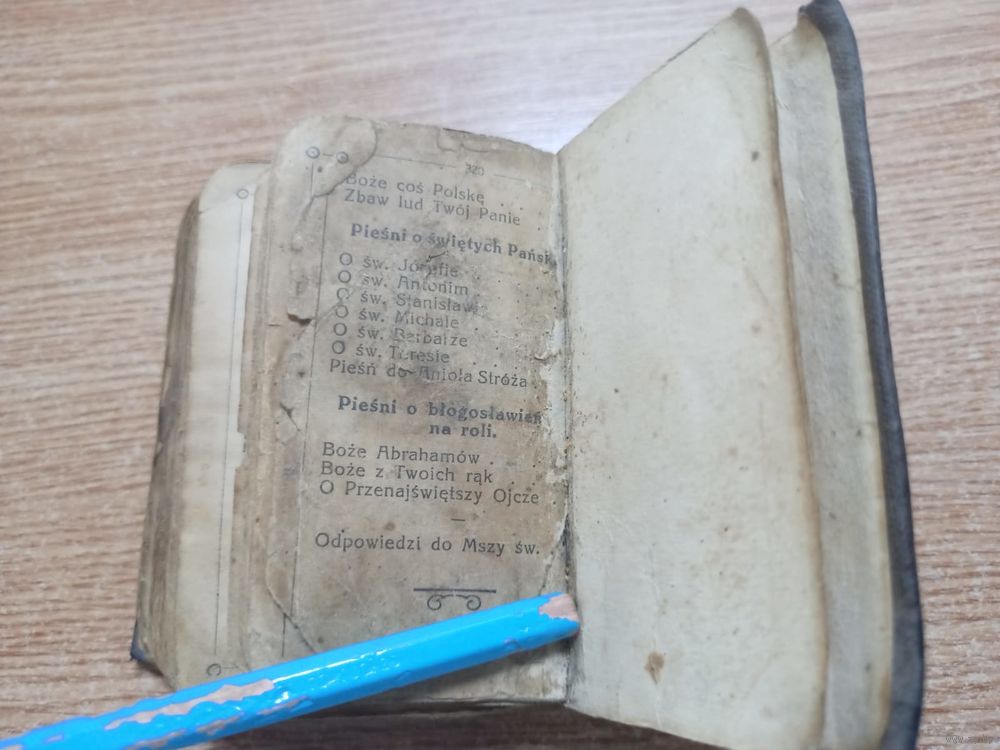 320
Boże coś Polskę
Zbaw lud Twój Panie
Pieśni o świętych Pańsk
O św. Józefie
O św. Antonim
O św. Stanisławi
O św. Michale
O św. Barbarze
O św. Teresie
Pieśń do Anioła Stróża
Pieśni o błogosławień
na roli.
Boże Abrahamów
Boże z Twoich rąk
O Przenajświętszy Ojcze
Odpowiedzi do Mszy św.